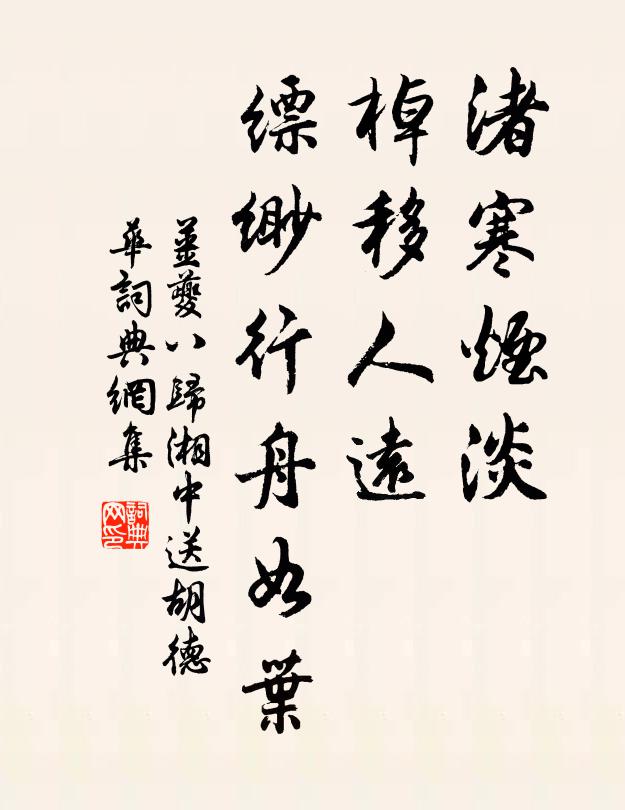 渚寒煙淡
棹移人遠
縹緲行舟如葉
姜夔八歸湘中送胡德
華詞典網集
詞典网印